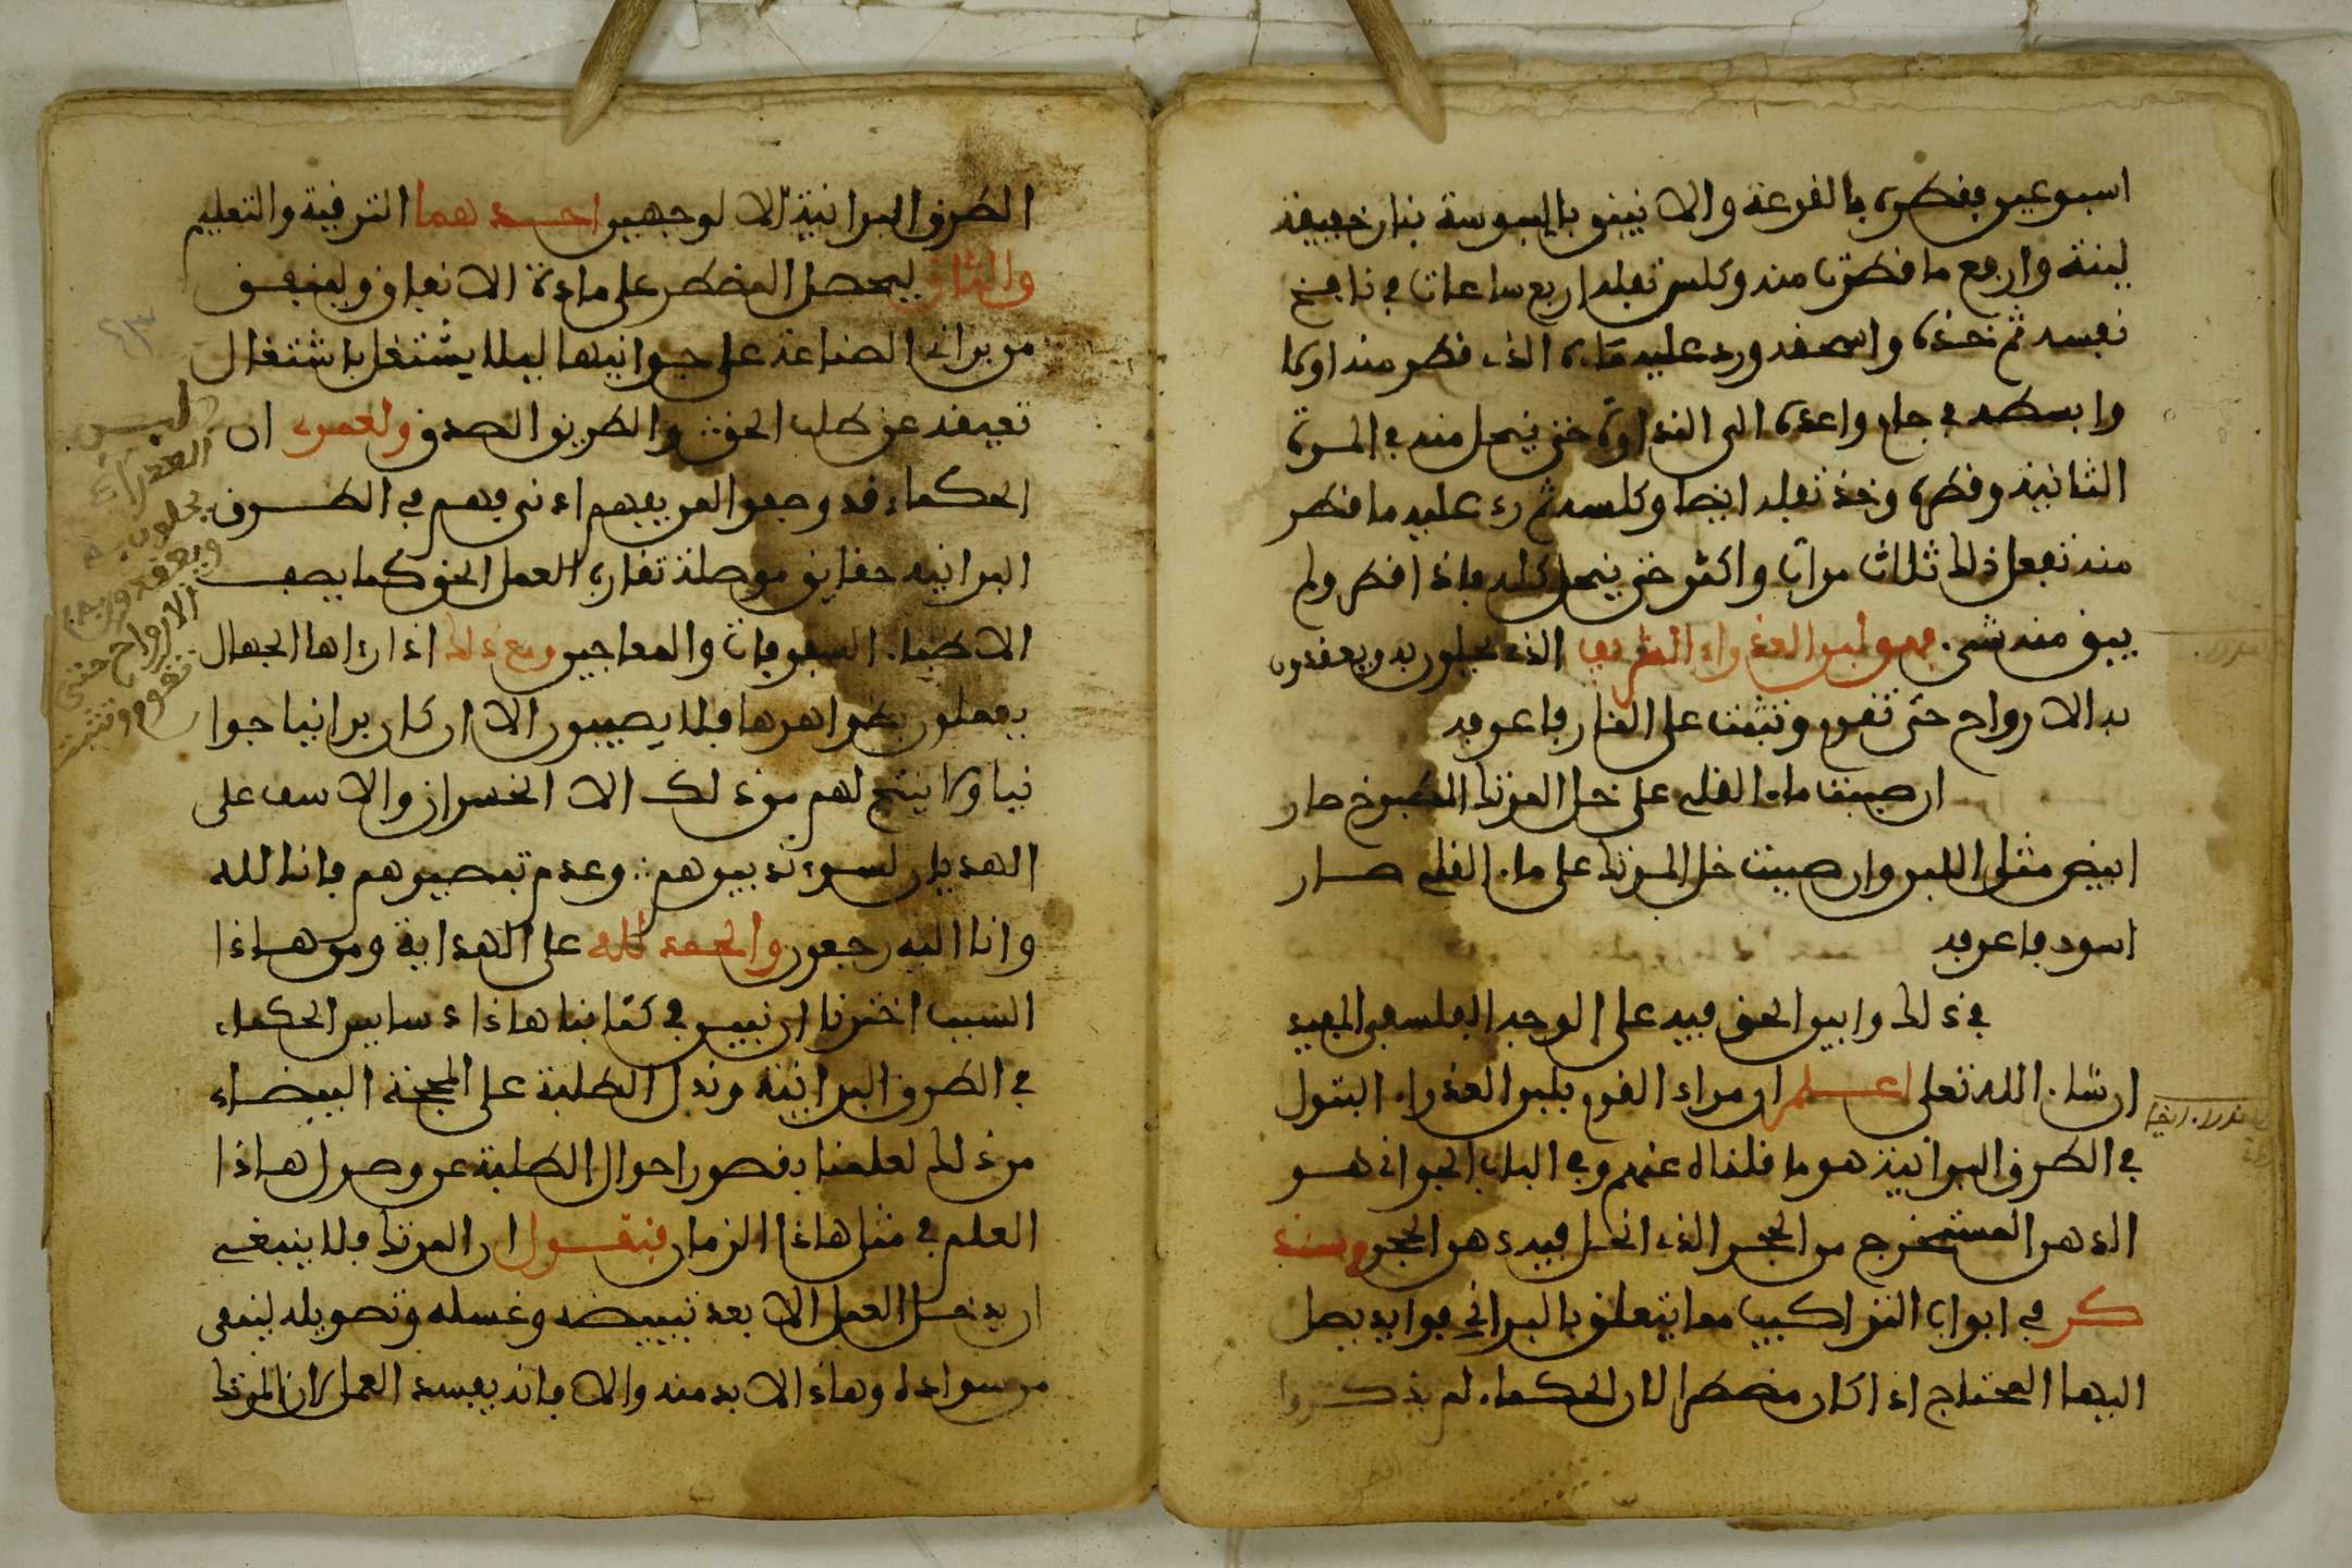 اسبوعين فقطره بالقرعة والانبيق باليبوسة بنار خفيفة
لينة وارفع ما قطرت منه وكلس ثفله اربع ساعات في نافخ
نفسه ثم خذه واسحقه ورد عليه ماءه الذي قطر منه اولا
وابسطه في جام واعده الى النداوة حتى ينحل منه في المرة
الثانية وقطره وخذ ثفله ايضا وكلسه ثم رد عليه ما قطر
منه تفعل ذلك ثلاث مرات واكثر حتى ينحل كله فاذا قطر ولم
يبق منه شيء فهو لبن العذراء الشريف الذي يحلون به ويعقدون
به الارواح حتى تقوم وتثبت على النار فاعرفه
ان صببت ماء القلي على خل المرتك المطبوخ صار
ابيض مثل اللبن وان صببت خل المرتك على ماء القلي صار
اسود فاعرفه
في ذلك وابين الحق فيه على الوجه الفلسفي المفيد
ان شاء الله تعلى اعلم ان مراد القوم بلبن العذراء البتول
في الطرق البرانية هو ما قلناه عنهم وفي الباب الجواني هو
الدهن المستخرج من الحجر الذي انحل فيه دهن الحجر وسنذ
كر في ابواب التراكيب مما يتعلق بالبراني فوايد يصل
اليها المحتاج اذا كان مضطرا لان الحكماء لم يذكروا
الطرق البرانية الا لوجهين احدهما الترقية والتعليم
والثاني ليحصل المضطر على مادة الانفاق ولينفق
من براني الصناعة على جوانيها ليلا يشتغل باشتغال
تعيقه عن طلب الحق والطريق الصدق ولعمري ان
الحكماء قد وضعوا لمريديهم اذ نرقيهم في الطرق
البرانية حقايق موصلة تقارب العمل الحق كما يصف
الاطباء السفوفات والمعاجين ومع ذلك اذا رءاها الجهال
يعملون بظواهرها فلا يصيبون الا ان كان برانيا جوا
نيا ولا ينتج لهم من ذلك الا الخسران والاسف على
الهذيان لسوء تدبيرهم وعدم تبصيرهم فانا لله
وانا اليه رجعون والحمد لله على الهداية ومن هاذا
السبب اخترنا ان نبين في كتابنا هاذا دسايس الحكماء
في الطرق البرانية وندل الطلبة على المحجة البيضاء
من ذلك لعلمنا بقصور احوال الطلبة عن وصول هاذا
العلم في مثل هاذا الزمان فنقول ان المرتك فلا ينبغي
ان يدخل العمل الا بعد تبييضه وغسله وتصويله لينقى
من سواده وهاذا لا بد منه والا فانه يفسد العمل لان المرتك
لبن
العذراء
يحلون به
ويعقدون به
الارواح حتى
تقوم وتثبت